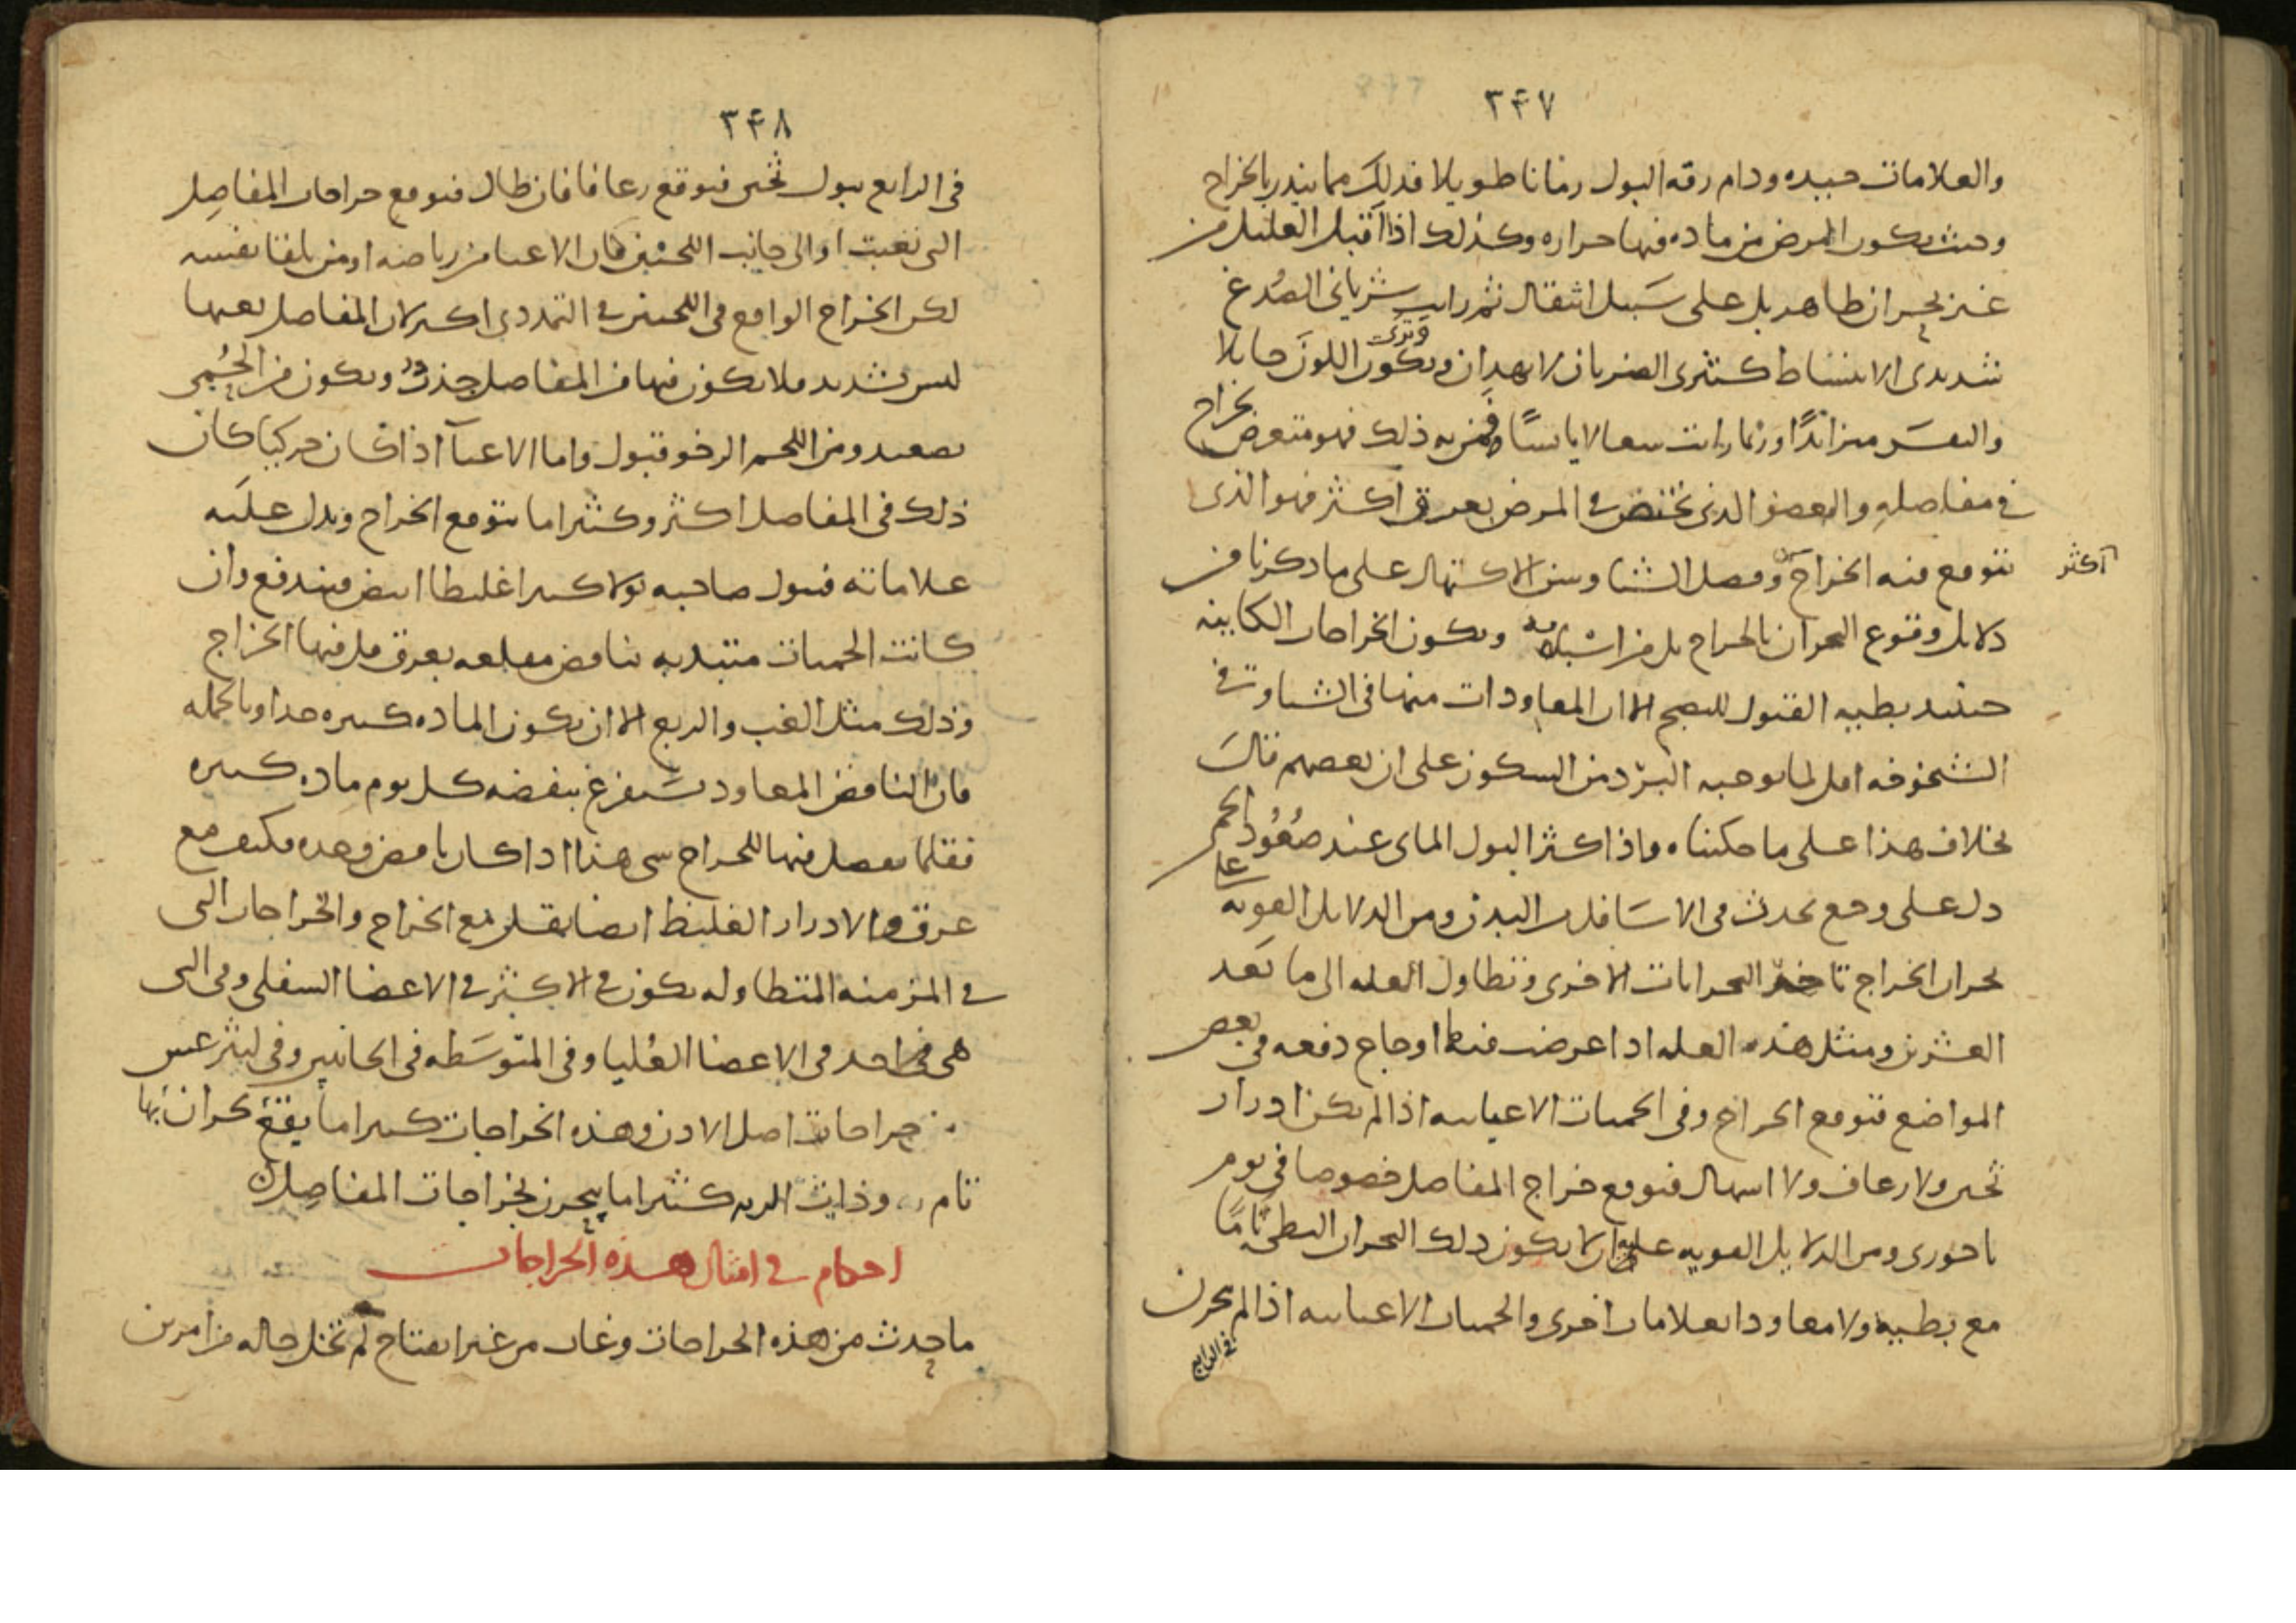 ٣۴٧
والعلامات جيده ودام رقه البول زمانا طويلا فذلك مما ينذر بالخراج
وحيث يكون المرض من ماده فيها حراره وكذلك اذا اقبل العليل من
غير بحران ظاهر بل على سبيل انتقال ثم رايت شرياني الصدغ
شديدى الانبساط كثيرى الضربان لا يهدان ويكون وترى اللون حايلا
والنفس متزائدا وربما رايت سعالا يابسا فمن به ذلك فهو متعرض لخراج
في مفاصله والعضو الذى يختص في المرض بعرق اكثر فهو الذى
آكثر
يتوقع فيه الخراج وفصل الشتا وسن الاكتهال على ما ذكرنا من
دلايل وقوع البحران بالخراج بل من اسبابه ويكون الخراجات الكاينه
حينيذ بطييه القبول للنضج الا ان المعاودات منها في الشتا وفي
الشيخوخه اقل لما يوجبه البرد من السكون على ان بعضهم قال
بخلاف هذا على ما حكيناه واذا كثر البول الماى عند صعود الحمى
دل على وجع يحدث في الاسافل من البدن ومن الدلايل القويه على
بحران الخراج تاخر البحرانات الاخرى وتطاول العله الى ما بعد
العشرين ومثل هذه العله اذا عرضت فيها اوجاع دفعه في بعض
المواضع فتوقع الخراج وفي الحميات الاعيائيه اذا لم يكن ادرار
ثخين ولا رعاف ولا اسهال فتوقع خراج المفاصل خصوصا في يوم
باحورى ومن الدلايل القويه عليه ان لا يكون ذلك البحران البطى تاما
مع بطييه ولا معاودا بعلامات اخرى والحميات الاعيائيه اذا لم يبحرن
في الرابع
٣۴٨
في الرابع ببول ثخين فتوقع رعافا فان طال فتوقع خراجات المفاصل
التى تعبت او الى جانب اللحيين كان الاعيا من رياضه او من تلقا نفسه
لكن الخراج الواقع في اللحيين في التمددى اكثر لان المفاصل تعبها
ليس بشديد فلا يكون فيها من المفاصل جذب ويكون من الحمى
تصعيد ومن اللحم الرخو قبول واما الاعيآ اذا كان حركيا كان
ذلك في المفاصل اكثر وكثيرا ما يتوقع الخراج ويدل عليه
علاماته فيبول صاحبه بولا كثيرا غليظا ابيض فيندفع وان
كانت الحميات مبتديه بنافض مقلعه بعرق قل فيها الخراج
وذلك مثل الغب والربع الا ان يكون الماده كثيره جدا وبالجمله
فان النافض المعاود يستفرغ بنفضه كل يوم ماده كثيره
فقلما يفضل فيها للخراج شى هذا اذا كان نافض وحده فكيف مع
عرق والادرار الغليظ ايضا يقل مع الخراج والخراجات التى
في المزمنه المتطاوله يكون في الاكثر في الاعضا السفلى وفي التى
هى احد في الاعضا العليا وفي المتوسطه في الجانبين وفي ليثرغس
خراجات اصل الاذن وهذه الخراجات كثيرا ما يقع بحران بها
تام وذات الريه كثيرا ما يبحرن بخراجات المفاصل
احكام في امثال هذه الخراجات
ما حدث من هذه الخراجات وغاب من غير انفتاح لم تخل حاله من امرين